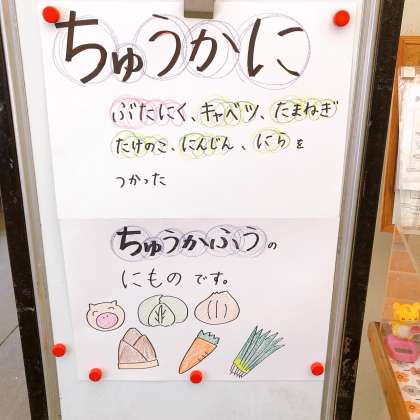 ちゅうかに
ぶたにく、キャベツ、たまねぎ
たけのこ、にんじん、にらを
つかった
ちゅうかふうの
にものです。